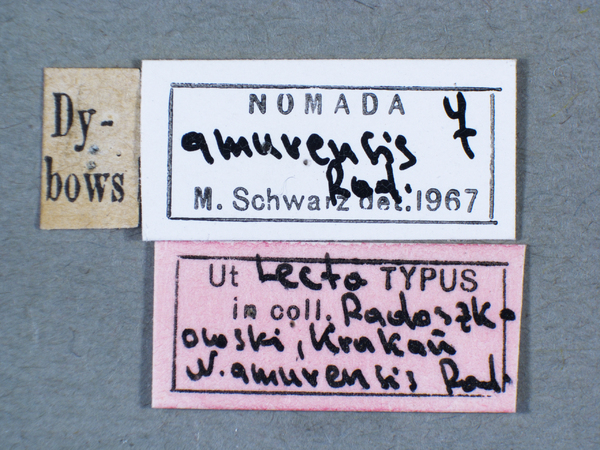 Dy-
bows
NOMADA
amurensis
Rad.
M. Schwarz det. 1967
Ut Lecto TYPUS
in coll. Radoszk-
owski, Krakau
N. amurensis Rad.